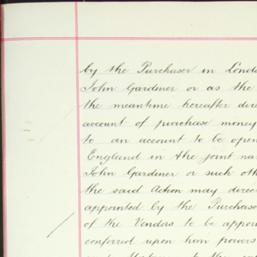 by the Purchaser in Lond
John Gardiner or as the
the meantime hereafter dire
account of purchase money
to an account to be open
England in the joint na
John Gardiner or such oth
the said Action may direc
appointed by the Purchase
of the Vendors to be appoi
conferred upon him powers